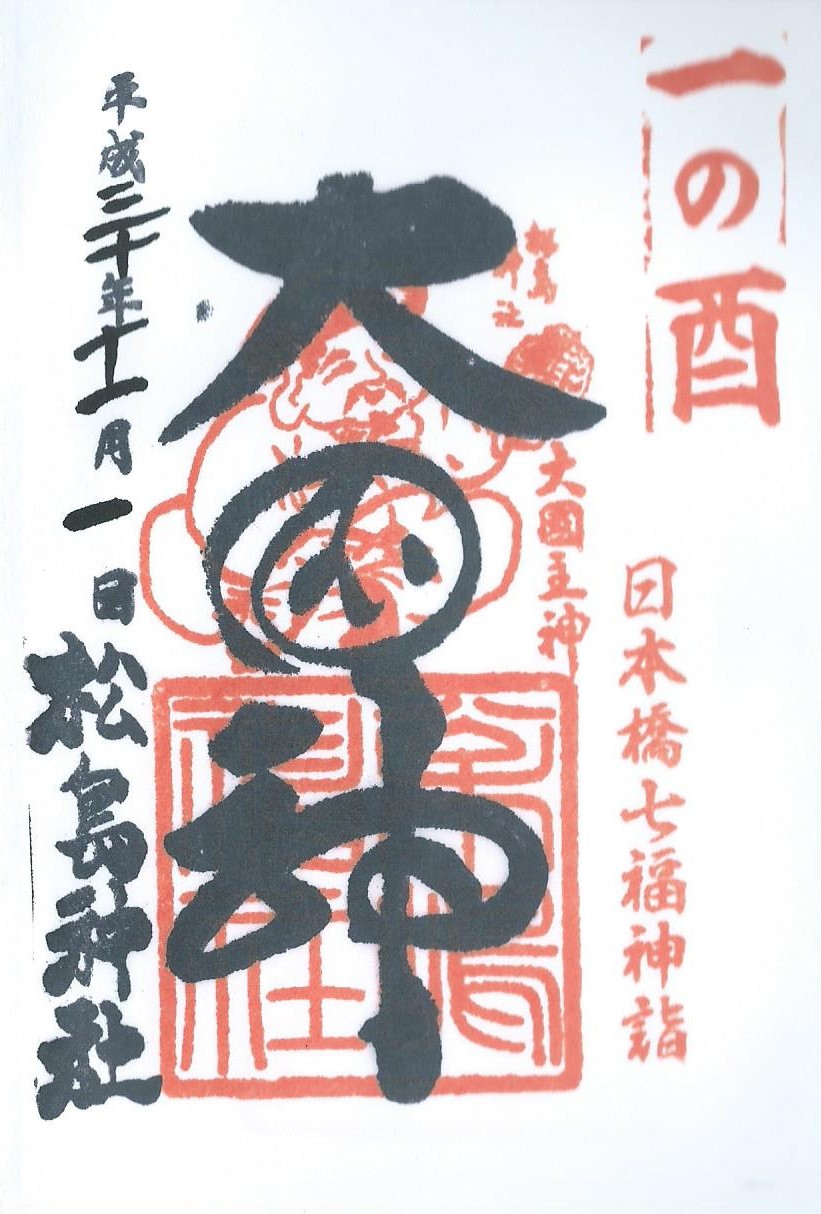 一の酉
日本橋七福神詣
松島神社
大國主神
大国神
平成三十年十一月一日
松島神社